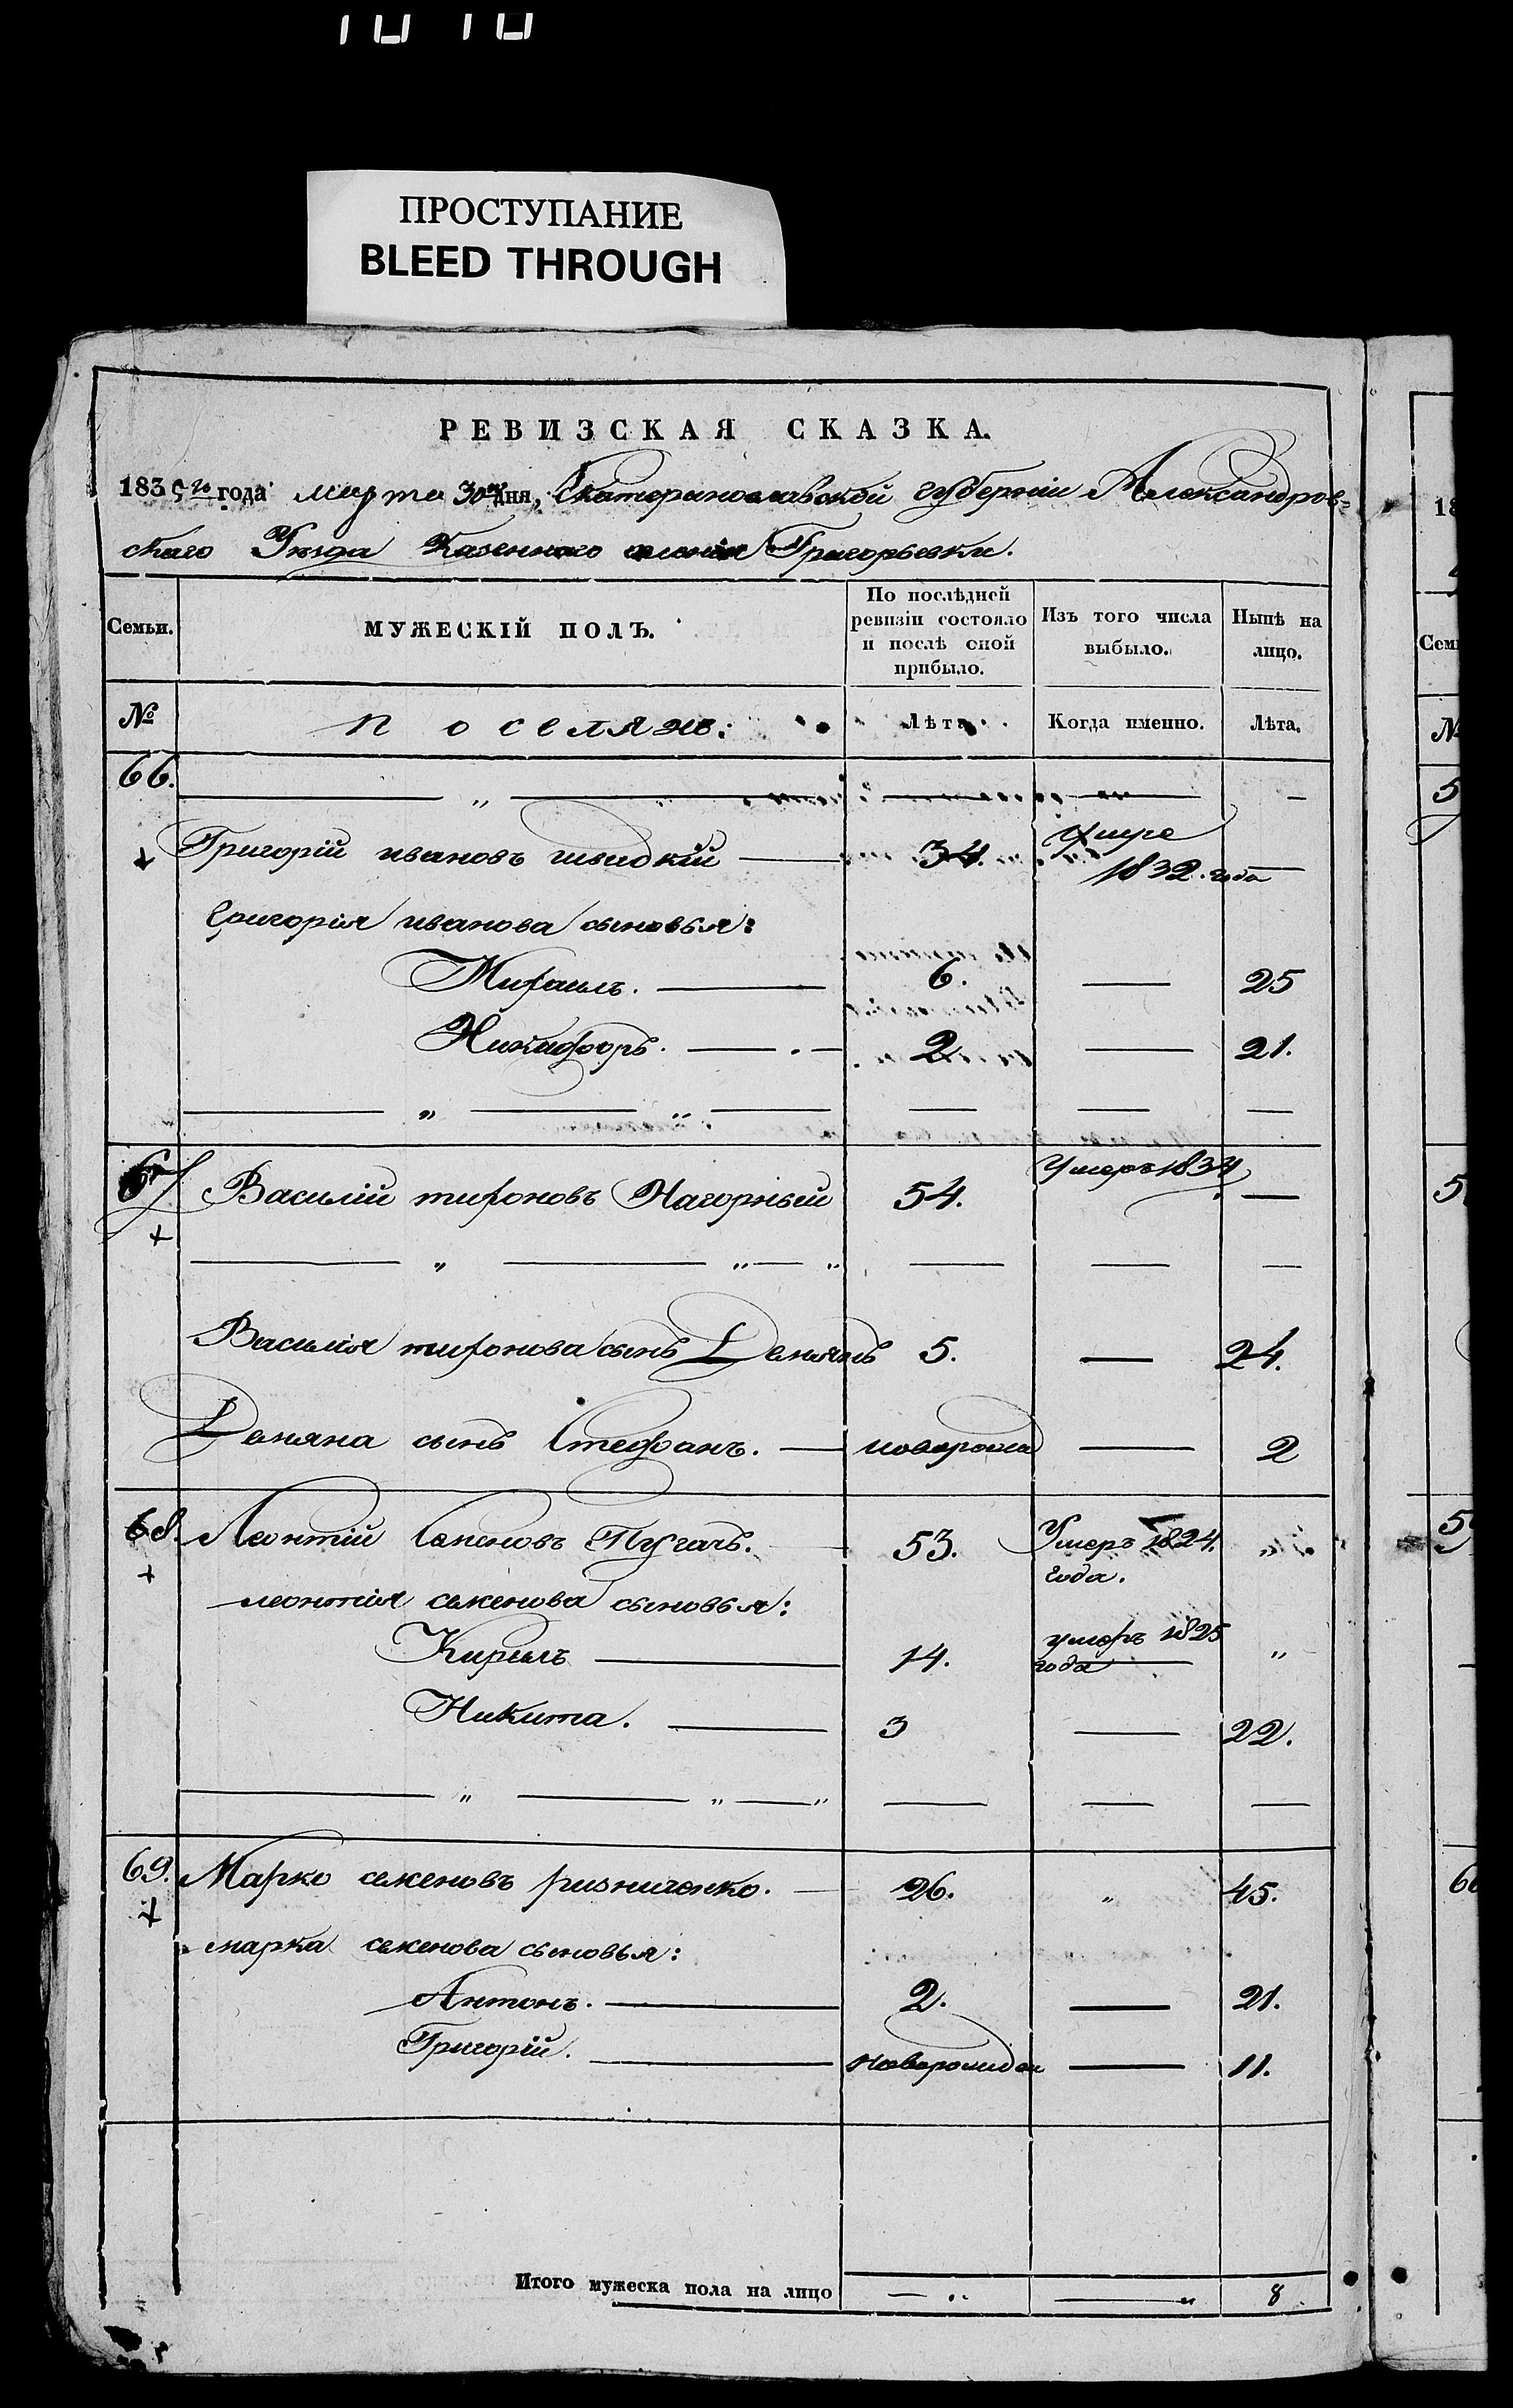 ПРОСТУПАНИЕ
BLEED THROUGH
РЕВИЗСКАЯ СКАЗКА.
1835го года марта 30го дня, Екатеринославской губерніи Александров-
скаго Уѣзда Казеннаго селенія Григорьевки.
Семьи. МУЖЕСКІЙ ПОЛЪ. По послѣдней ревизіи состояло и послѣ оной прибыло. Изъ того числа выбыло. Нынѣ на лицо.
№ Поселянъ: Лѣта. Когда именно. Лѣта.
66.
Григорій ивановъ швидкій 34. 1832. года
Григорія иванова сыновья:
Михаилъ. 6. 25
Никифоръ. 2 21.
67 Василій тихоновъ Нагорный 54. Умеръ 1834
Василія тихонова сынъ Демянъ 5. 24.
Демяна сынъ Стефанъ. 2
68. Леонтій Семеновъ Пугачъ. 53. Умеръ 1824. года.
леонтія семенова сыновья:
Кирилъ 14. умеръ 1825 года
Никита. 3 22.
69. Марко семеновъ ризниченко. 26. 45.
марка семенова сыновья:
Антонъ. 2. 21.
Григорій. новорожден 11.
Итого мужеска пола на лицо 8